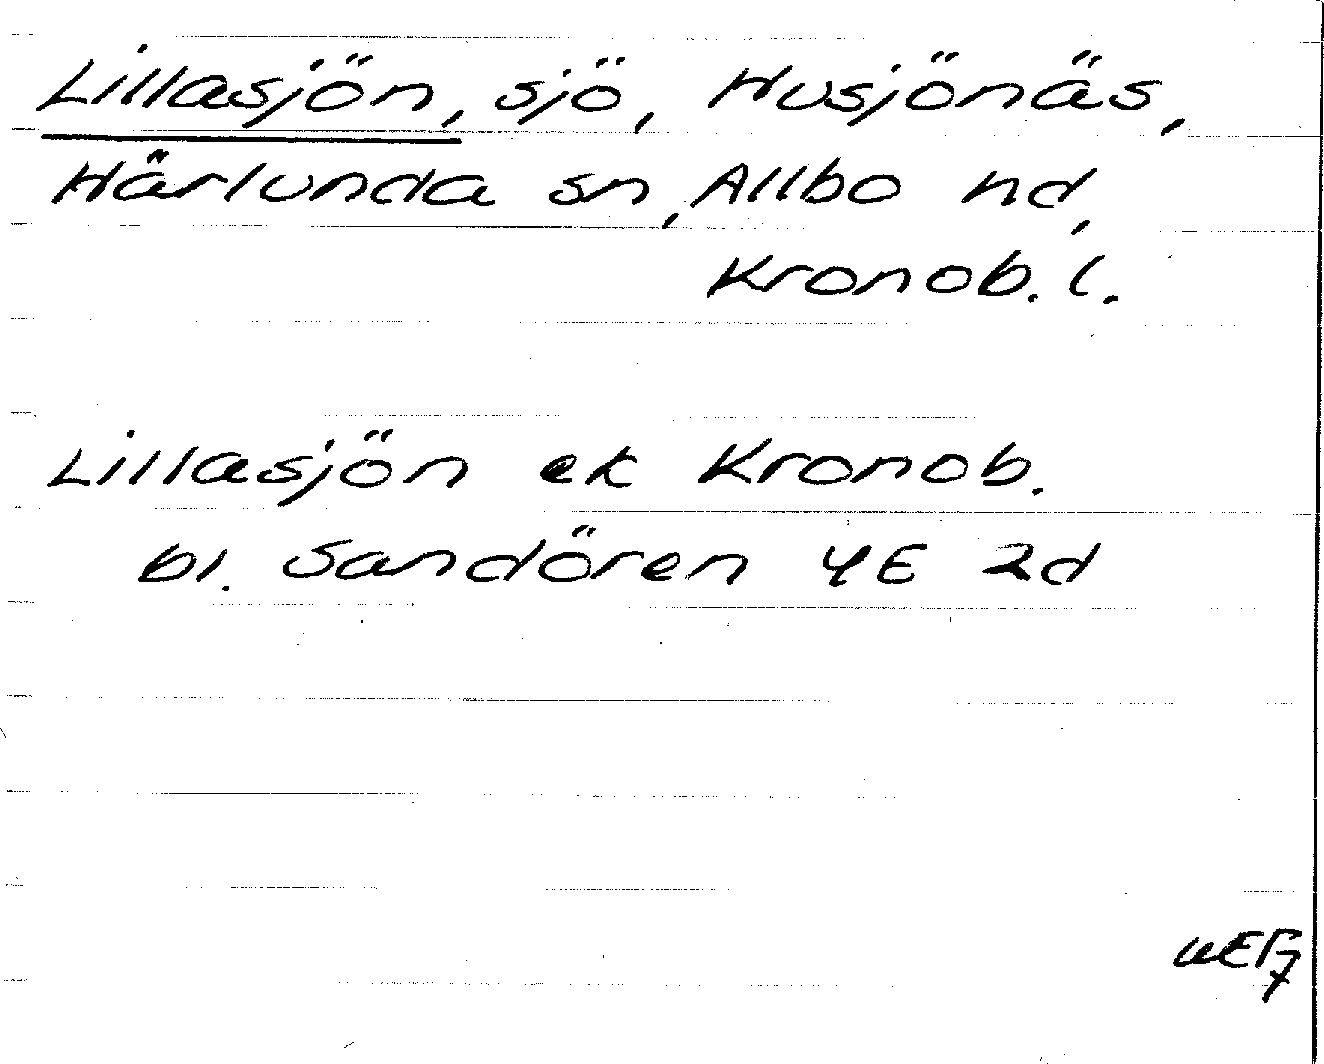 Lillasjön, sjö, Husjönäs,
Härlunda sn, Allbo hd,
Kronob. l.
Lillasjön ek Kronob.
bl. Sandören 4E 2d